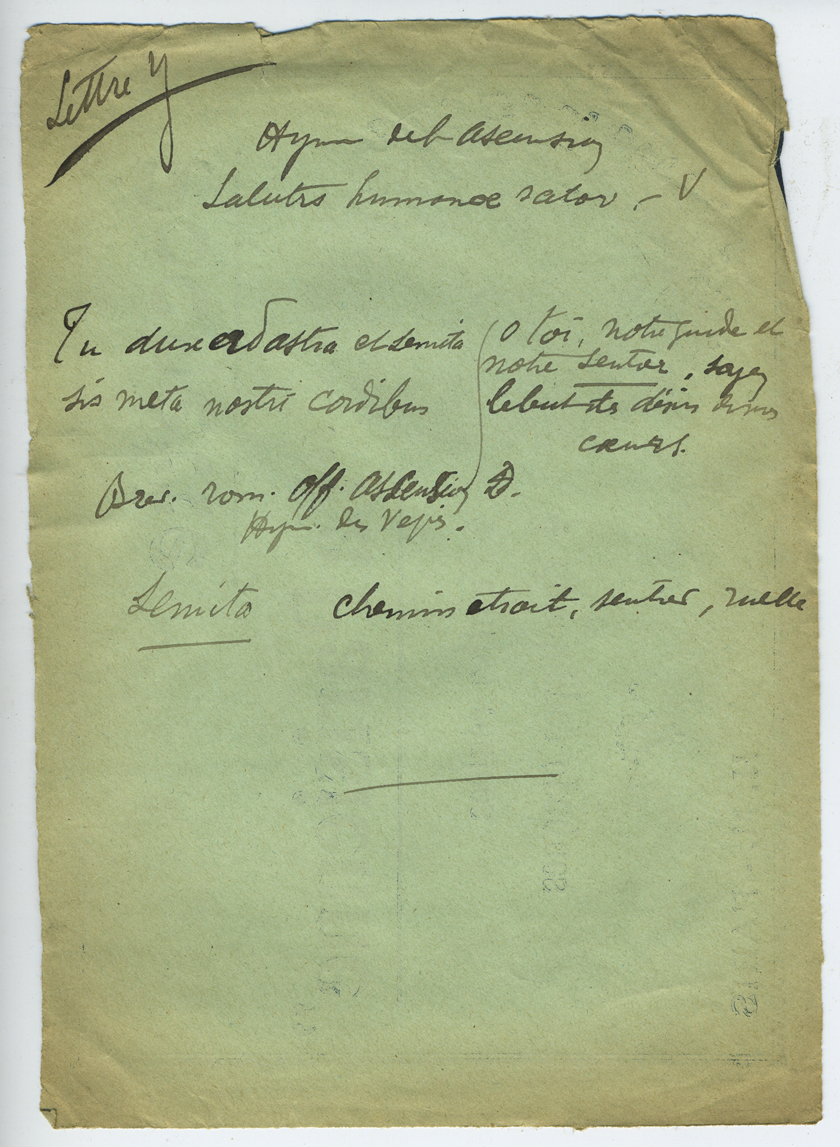 Lettre Y
Hymn de l'Ascension
Salutis humanae sator, – V
Tu dux ad astra et semita
sis meta nostri cordibus
O toi, notre guide et
notre sentier, soyez
le but des désirs de nos
cœurs.
Brev. rom. off. Ascension D.
Hym. des Vepr.
Semita chemins etroit, sentier, ruelle